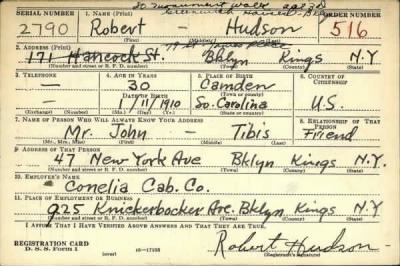 So. Monument Walk
SERIAL NUMBER 1. NAME (Print) ORDER NUMBER
2790 Robert Hudson 516
(First) (Middle) (Last)
2. ADDRESS (Print)
171 Hancock St. Bklyn Kings N.Y
(Number and street or R. F. D. number) (Town) (County) (State)
3. TELEPHONE 4. AGE IN YEARS 5. PLACE OF BIRTH 6. COUNTRY OF CITIZENSHIP
— 30 Camden
DATE OF BIRTH (Town or county)
— 1/11/1910 So. Carolina U.S.
(Exchange) (Number) (Mo.) (Day) (Yr.) (State or country)
7. NAME OF PERSON WHO WILL ALWAYS KNOW YOUR ADDRESS 8. RELATIONSHIP OF THAT PERSON
Mr. John — Tibis Friend
(Mr., Mrs., Miss) (First) (Middle) (Last)
9. ADDRESS OF THAT PERSON
47 New York Ave Bklyn Kings N.Y.
(Number and street or R. F. D. number) (Town) (County) (State)
10. EMPLOYER'S NAME
Conelia Cab. Co.
11. PLACE OF EMPLOYMENT OR BUSINESS
925 Knickerbocker Ave. Bklyn Kings N.Y
(Number and street or R. F. D. number) (Town) (County) (State)
I AFFIRM THAT I HAVE VERIFIED ABOVE ANSWERS AND THAT THEY ARE TRUE.
REGISTRATION CARD
D. S. S. Form 1 (over) 16—17105 Robert Hudson